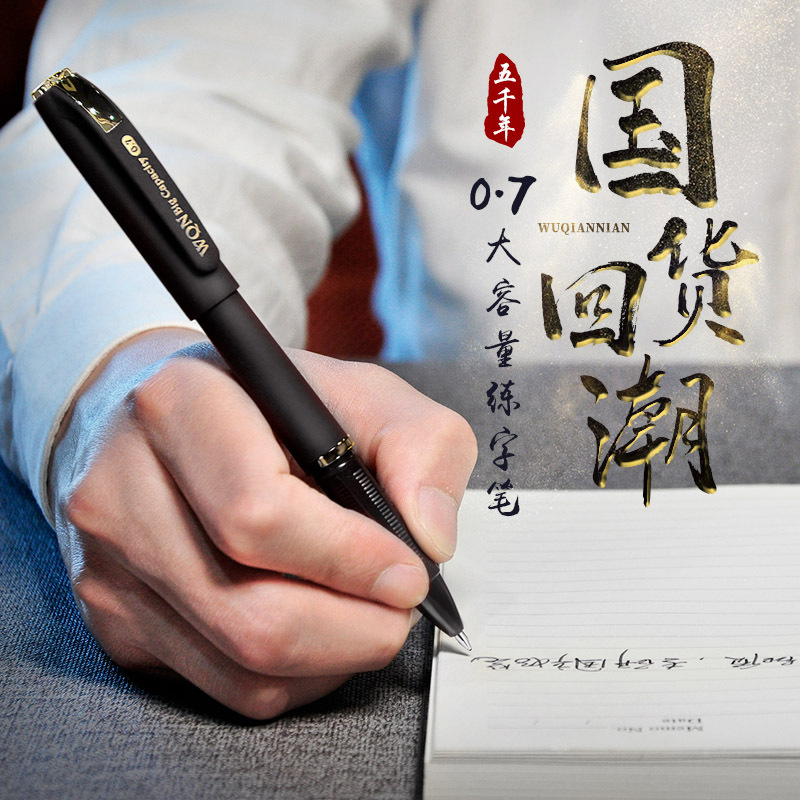 五千年
国货
回潮
WUQIANNIAN
0.7
大容量练字笔
WQN Big Capacity 0.7
Memo No.
Date